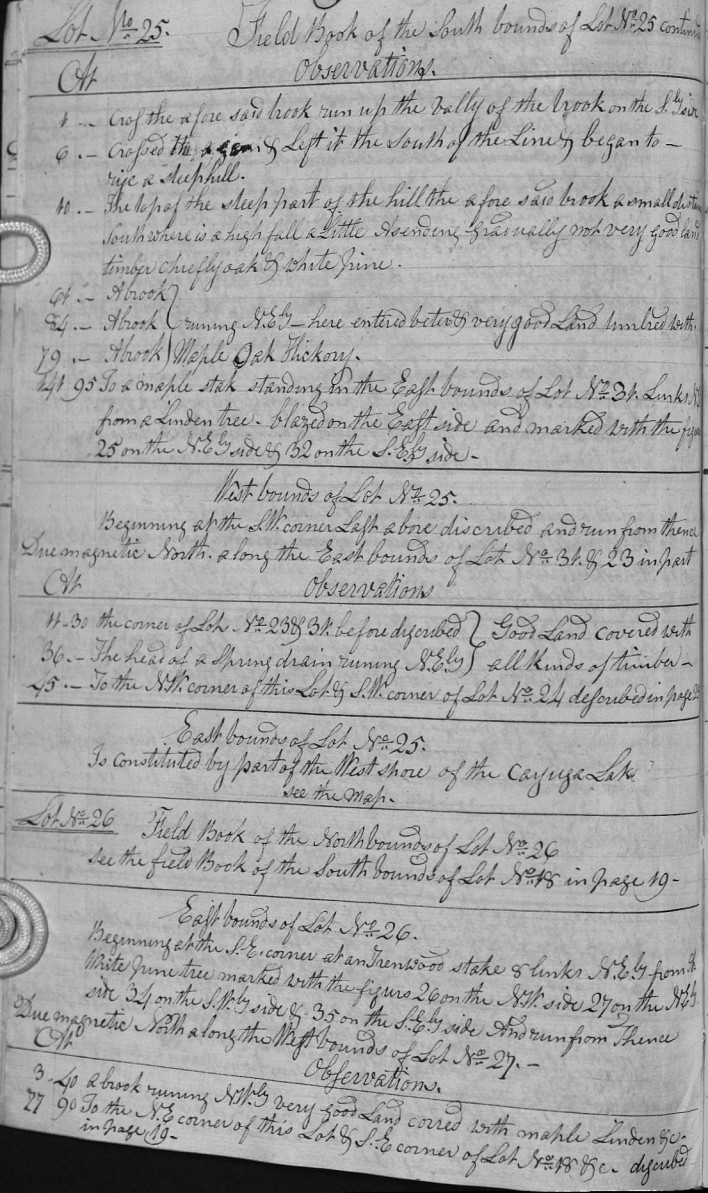 Lot No. 25. Field Book of the South bounds of Lot No. 25 continu
Att Observations.
1 .- Cross the afore said brook run up the vally of the brook on the S.ly side
6 .- Crossed the & Left it the South of the Line & began to -
rise a steep hill.
10 .- The top of the steep part of the hill the afore said brook a small distan
South where is a high fall a Little Asending gradually not very good land
timber chiefly oak & white Pine.
.- A brook
.- A brook runing N.E.ly - here entered beter & very good Land timbred with
79 .- A brook Maple Oak Hickory.
141 95 To a maple stak standing in the East bounds of Lot No. 31. Links
from a Linden tree. blazed on the East side and marked with the figu
25 on the N.E.ly side & 32 on the S.E.ly side -
West bounds of Lot No. 25.
Beginning at the S.W. corner Last above discribed and run from thence
Due magnetic North. along the East bounds of Lot No. 31. & 23 in part
Att Observations
11.30 the corner of Lot No. 23 & 31. before discribed Good Land covered with
36 .- The head of a Spring drain runing N.E.ly all Kinds of timber -
45 .- To the N.W. corner of this Lot & S.W. corner of Lot No. 24 described in page
East bounds of Lot No. 25.
Is Constituted by part of the West shore of the Cayuga Lake
see the Map.
Lot No. 26 Field Book of the North bounds of Lot No. 26
see the field Book of the South bounds of Lot No. 18 in page 19 -
East bounds of Lot No. 26.
Beginning at the S.E. corner at an Irenwood stake 8 links N.E.ly from a
White Pine tree marked with the figurs 26 on the N.W. side 27 on the N.E.ly
side 34 on the S.W.ly side & 35 on the S.E.ly side And run from Thence
Due magnetic North along the West bounds of Lot No. 27. -
Att Observations.
3.40 a brook runing N.W.ly very good Land corred with maple Linden &c.
77 90 To the N.E corner of this Lot & S.E corner of Lot No. 18 &c. discribed
in page 19 -